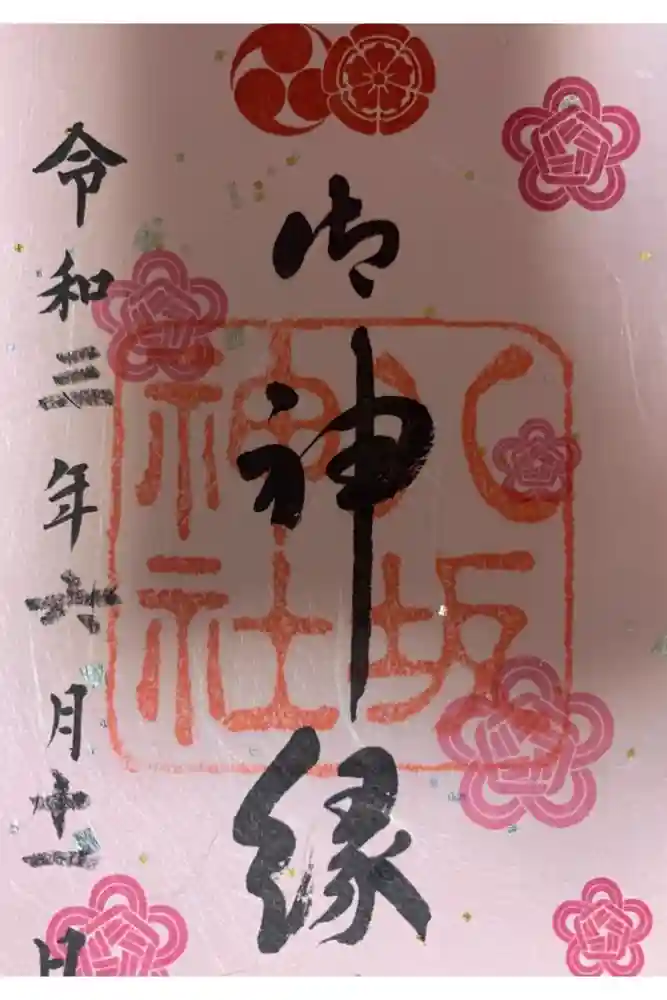 御神縁
令和三年六月十一日
八坂
神社